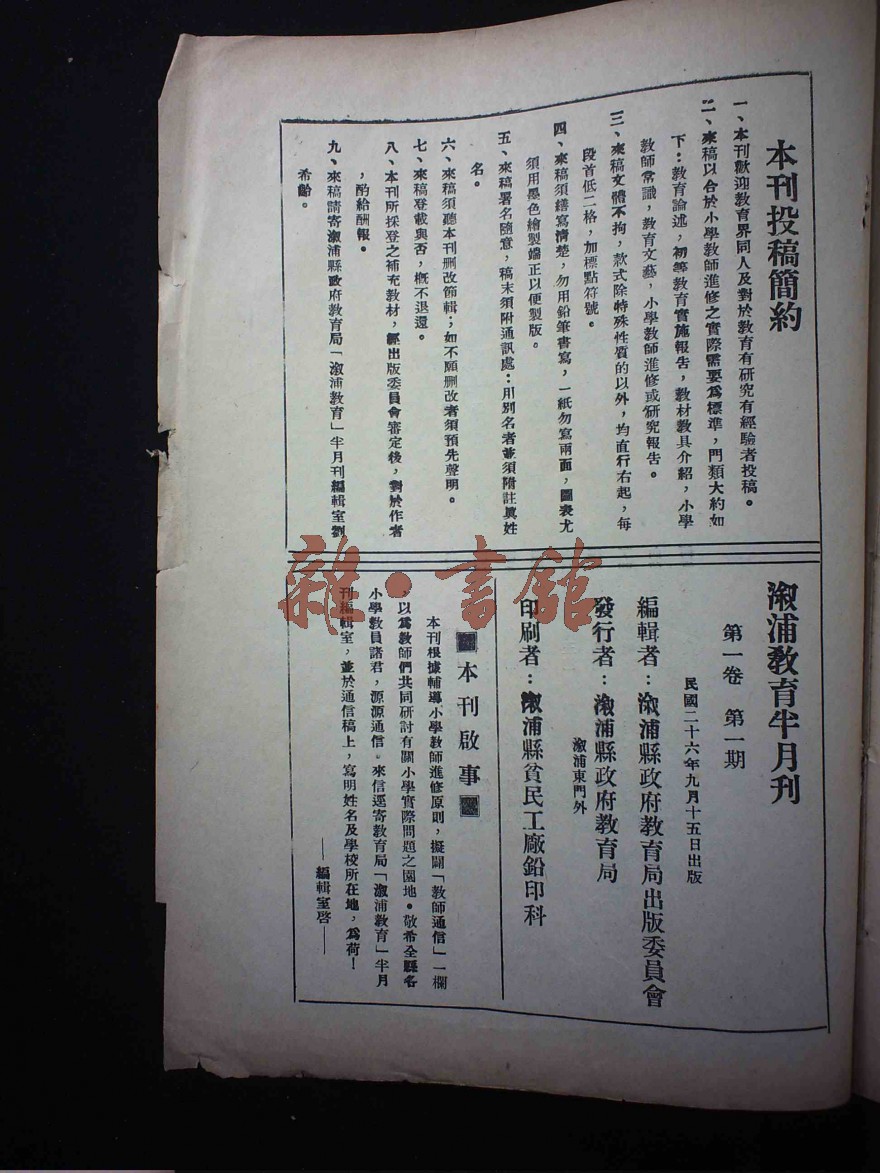 本刊投稿簡約
一、本刊歡迎教育界同人及對於教育有研究有經驗者投稿。
二、來稿以合於小學教師進修之實際需要爲標準，門類大約如
下：教育論述，初等教育實施報告，教材教具介紹，小學
教師常識，教育文藝，小學教師進修或研究報告。
三、來稿文體不拘，款式除特殊性質的以外，均直行右起，每
段首低二格，加標點符號。
四、來稿須繕寫清楚，勿用鉛筆書寫，一紙勿寫兩面，圖表尤
須用墨色繪製端正以便製版。
五、來稿署名隨意，稿末須附通訊處：用別名者並須附註眞姓
名。
六、來稿須聽本刊删改節輯；如不願删改者須預先聲明。
七、來稿登載與否，概不退還。
八、本刊所採登之補充教材，經出版委員會審定後，對於作者
，酌給酬報。
九、來稿請寄溆浦縣政府教育局「溆浦教育」半月刊編輯室劉
希齡。
溆浦教育半月刊
第一卷 第一期
民國二十六年九月十五日出版
編輯者：溆浦縣政府教育局出版委員會
發行者：溆浦縣政府教育局
溆浦東門外
印刷者：溆浦縣貧民工廠鉛印科
本刊啟事
本刊根據輔導小學教師進修原則，擬闢「教師通信」一欄
，以爲教師們共同研討有關小學實際問題之園地。敬希全縣各
小學教員諸君，源源通信。來信逕寄教育局「溆浦教育」半月
刊編輯室，並於通信稿上，寫明姓名及學校所在地，爲荷！
——編輯室啓——
雜·書館